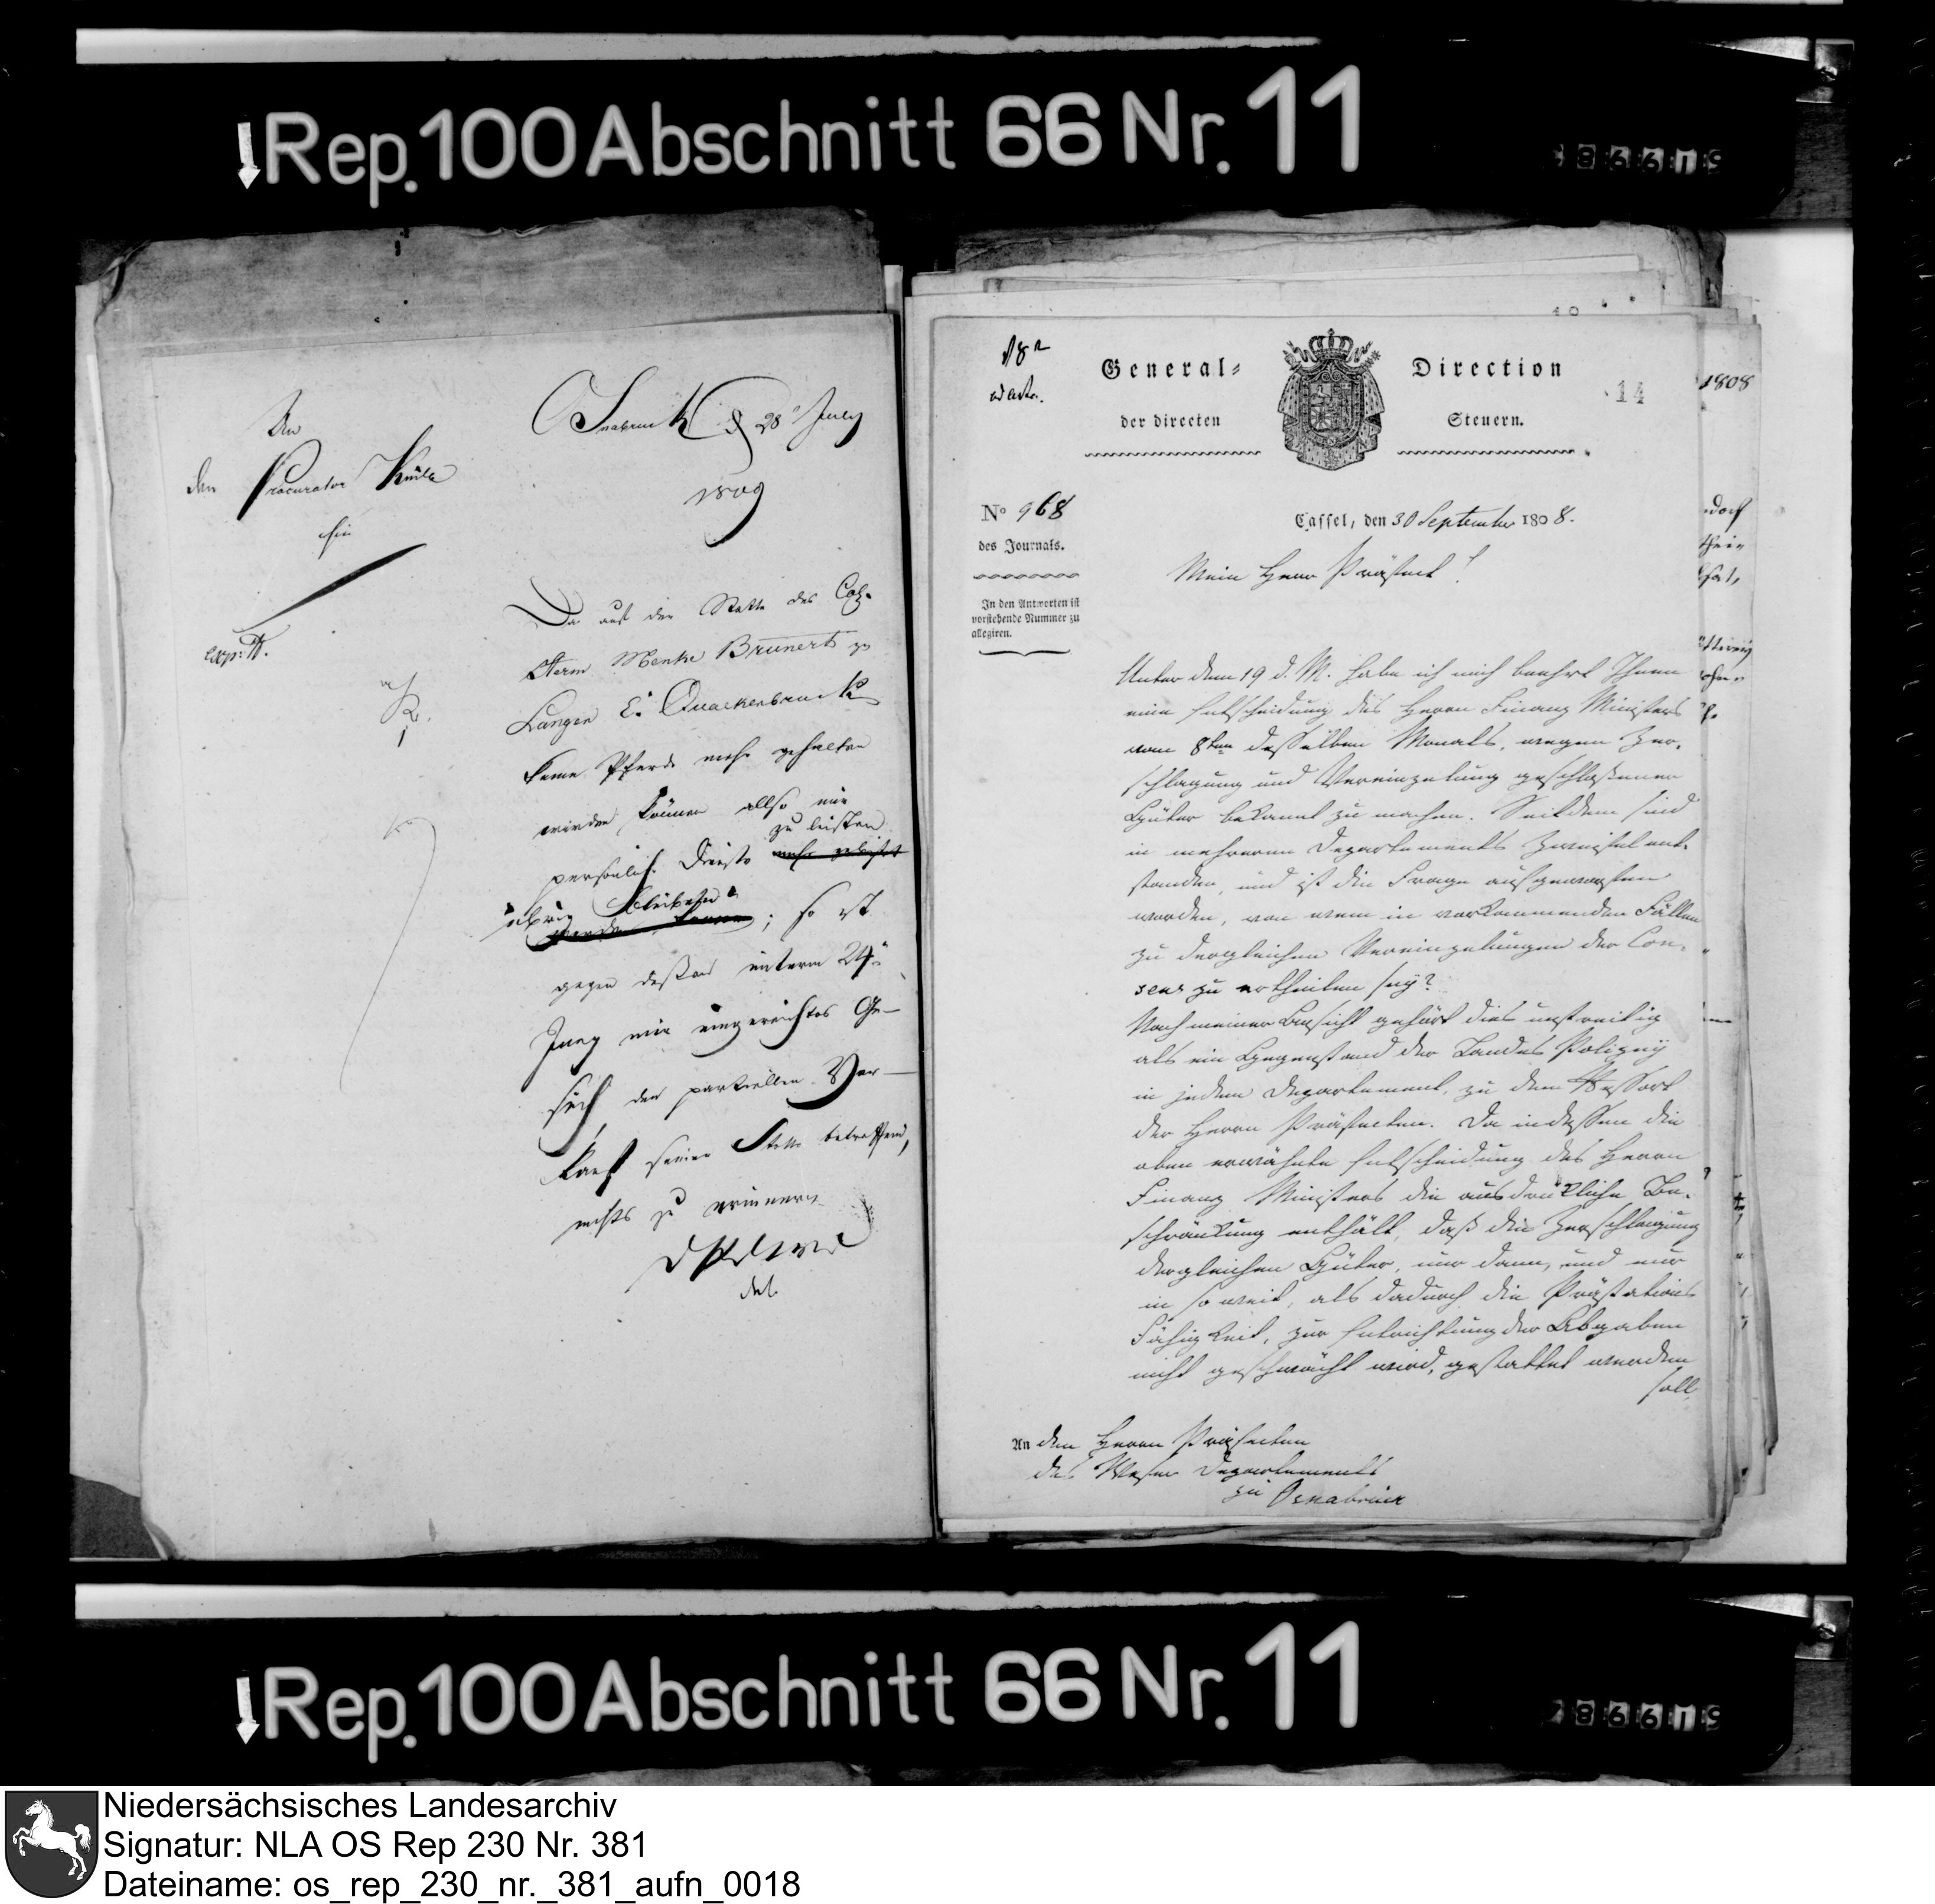 Rep. 100 Abschnitt 66 Nr. 11
86619
An
den Procurator
hier
Osnabrück d 28 July
1809
Da auf der Stette des Col.
Herm Menke Brunert zu
Langen
keine Pferde mehr gehalten
werden können also nur
zu leisten
persönliche Dienste mehr geleistet
übrig bleiben
werden können; so ist
gegen dessen unterm 24
Juny mir eingereichtes Ge-
such den partiellen Ver-
kauf seiner Stette betreffend,
nichts zu erinnern
General-Direction
der directen Steuern.
14
No 968
des Journals.
In den Antworten ist
vorstehende Nummer zu
allegiren.
Cassel, den 30 September 1808.
Mein Herr Präfect!
Unter dem 19 d. M. habe ich mich beehrt Ihnen
eine Entscheidung des Herrn Finanz Ministers
vom 8ten desselben Monats, wegen Zer-
schlagung und Vereinzelung geschloßener
Güter bekannt zu machen. Seitdem sind
in mehreren Departements Zweifel ent-
standen, und ist die Frage aufgeworfen
worden, von wem in vorkommenden Fällen
zu dergleichen Vereinzelungen der Con-
sens zu ertheilen sey?
Nach meiner Ansicht gehört dies unstreitig
als ein Gegenstand der Landes Polizey
in jedem Departement, zu dem Ressort
der Herrn Präfecten. Da indessen die
oben erwähnte Entscheidung des Herrn
Finanz Ministers die ausdrückliche Be-
schränkung enthält, daß die Zerschlagung
dergleichen Güter, nur dann, und nur
in so weit, als dadurch die Prästations
Fähigkeit, zur Entrichtung der Abgaben
nicht geschwächt wird, gestattet werden
soll,
An den Herrn Präfecten
des Weser Departements
zu Osnabrück
1808
Rep. 100 Abschnitt 66 Nr. 11
86619
Niedersächsisches Landesarchiv
Signatur: NLA OS Rep 230 Nr. 381
Dateiname: os_rep_230_nr._381_aufn_0018